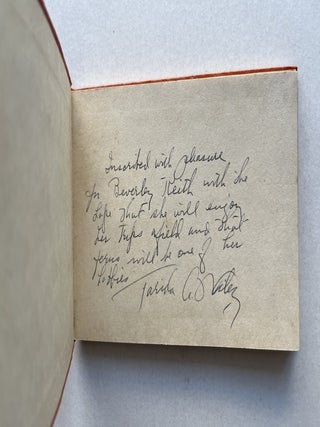 Inscribed with pleasure
for Beverley Keith with the
hope that she will enjoy
her trips afield and that
ferns will be one of her
hobbies
Farida A. Wiley